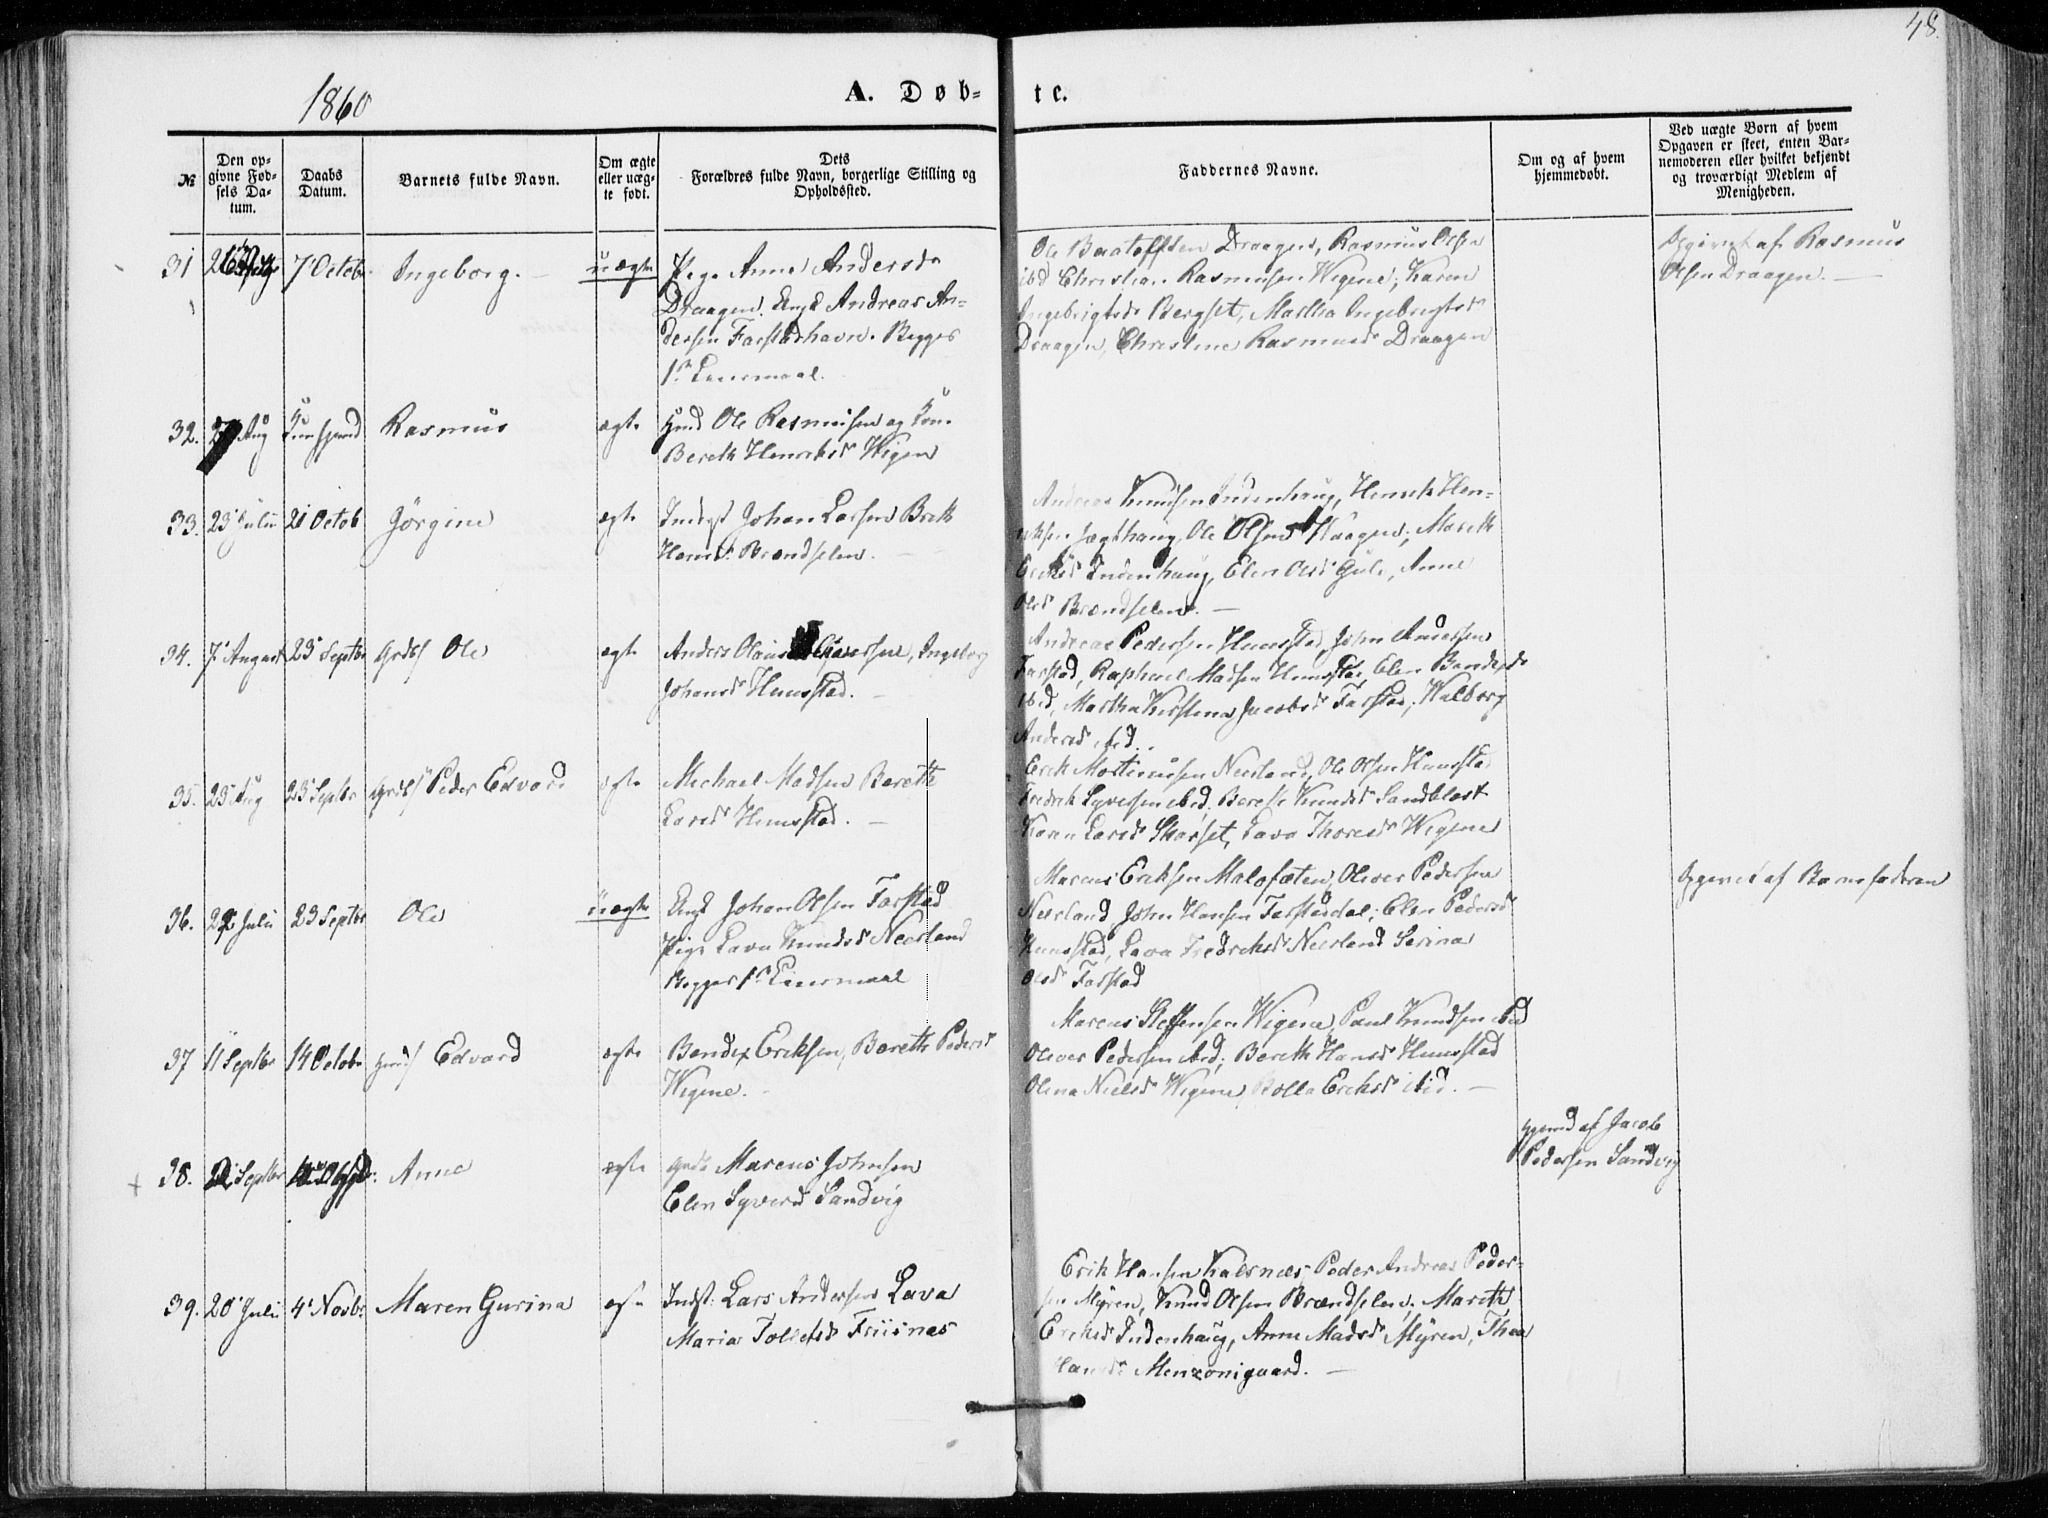 48.
1860
A. Døb-
te.
№
Den op-
givne Fød-
sels Da-
tum.
Daabs
Datum.
Barnets fulde Navn.
Om ægte
eller uæg-
te født.
Dets
Forældres fulde Navn, borgerlige Stilling og
Opholdssted.
Faddernes Navne.
Om og af hvem
hjemmedøbt.
Ved uægte Børn af hvem
Opgaven er skeet, enten Bar-
nemoderen eller hvilket bekjendt
og troværdigt Medlem af
Menigheden.
31
7 Octobr
Ingeborg.
uægte
Pige Anne Andersdr
Draagen. Ungk Andreas An-
dersen Farstadhavn. Begges
1ste Leiermaal.
Ole Draagen, Rasmus Olsen
ibd Christian Rasmussen Wigene, Karen
Ingebrigtsdr Bergset, Martha Ingebrigtsdr
Draagen, Christine Rasmusdr Draagen
Opgivet af Rasmus
Olsen Draagen.
32.
Aug
Rasmus
ægte
Gmd Ole Rasmussen og Kone
Bereth Henriksdr Wigen
33.
23 Julii
21 Octob
Jörgine
ægte
Johan Larsen Breth
Hansd. Brændselen.
Andreas Knudsen Indenhaug, Henrik Hen-
riksen Jægthaug, Ole Olsen Haagen, Mareth
Eriksd Indenhaug, Elen Olsd Gule, Anne
Olsd Brændselen.
34.
7 August
23 Septbr
Ole
ægte
Anders Olaus, Ingeborg
Johansd Hunstad.
Andreas Pedersen Hunstad, John Andersen
Farstad, Raphael Madsen Hunstad, Elen
ibid, Martha Kirstina Jacobsd Farstad, Walborg
Andersd ibid.
35.
25 Aug
23 Septbr
Peder Edvard
ægte
Michael Madsen Berette
Larsd Hunstad.
Erik Mortinusen Neerland, Ole Olsen Hunstad
Fredrik Syversen ibid. Berette Knudsd Sandblæst
Karen Larsd Skarset, Lava Thoresd Wigene
36.
Julii
23 Septbr
Ole
uægte
Ungk Johan Olsen Farstad
Pige Lava Knudsd Neerland
Begges 1ste Leiermaal
Marcus Eriksen Malefæten, Oliver Pedersen
Neerland John Hansen Farstaddal; Elen Pedersd
Hunstad, Lava Fredriksd Neerland Serina
Olsd Farstad
Opgivet af Barnefaderen
37
11 Septbr
14 Octobr
Edvard
ægte
Bendix Eriksen, Bereth Pedersd
Wigene.
Marcus Steffensen Wigene, Paul Knudsen ibid
Oliver Pedersen ibid; Bereth Hansd Hunstad
Olina Nielsd Wigene, Eriksd ibid.
38.
Septbr
Anne
ægte
Marcus Johnsen
Elen Syversd Sandvig
Hjemd af Jacob
Pedersen Sandvig
39.
20 Juli
4 Novbr
Maren Gurina
ægte
Indst: Lars Andersen Lava
Maria Tollefsd Friisnæs
Erik Hansen Kalsnæs, Peder Andreas Peder-
sen Myren, Knud Olsen Brændselen; Mareth
Eriksd Indenhaug, Anne Madsd Myren, Thea
Hansd Menzonigaard.